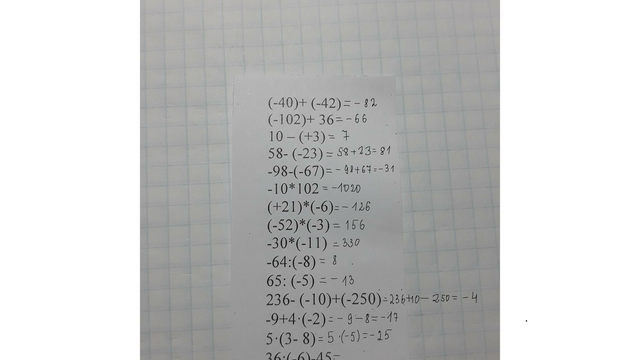 (-40)+ (-42)=-82
(-102)+ 36=-66
10 – (+3)= 7
58- (-23)= 58+23=81
-98-(-67)=-98+67=-31
-10*102=-1020
(+21)*(-6)=-126
(-52)*(-3)= 156
-30*(-11) =330
-64:(-8) = 8
65: (-5) =-13
236- (-10)+(-250)=236+10-250=-4
-9+4·(-2)=-9-8=-17
5·(3- 8)=5·(-5)=-25
36:(-6)-45=